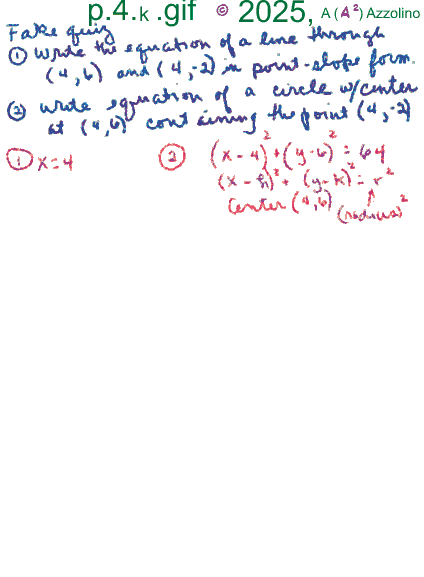 p.4.k .gif © 2025, A (A²) Azzolino
Fake quiz
① Write the equation of a line through
(4,6) and (4,-2) in point-slope form.
② Write equation of a circle w/center
at (4,6) containing the point (4,-2)
① x=4
② (x-4)²+(y-6)²=64
(x-h)²+(y-k)²=r²
center (4,6) (radius)²